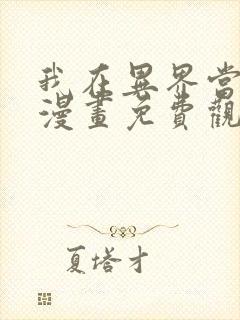 我在異界當
漫畫免費觀
夏塔才